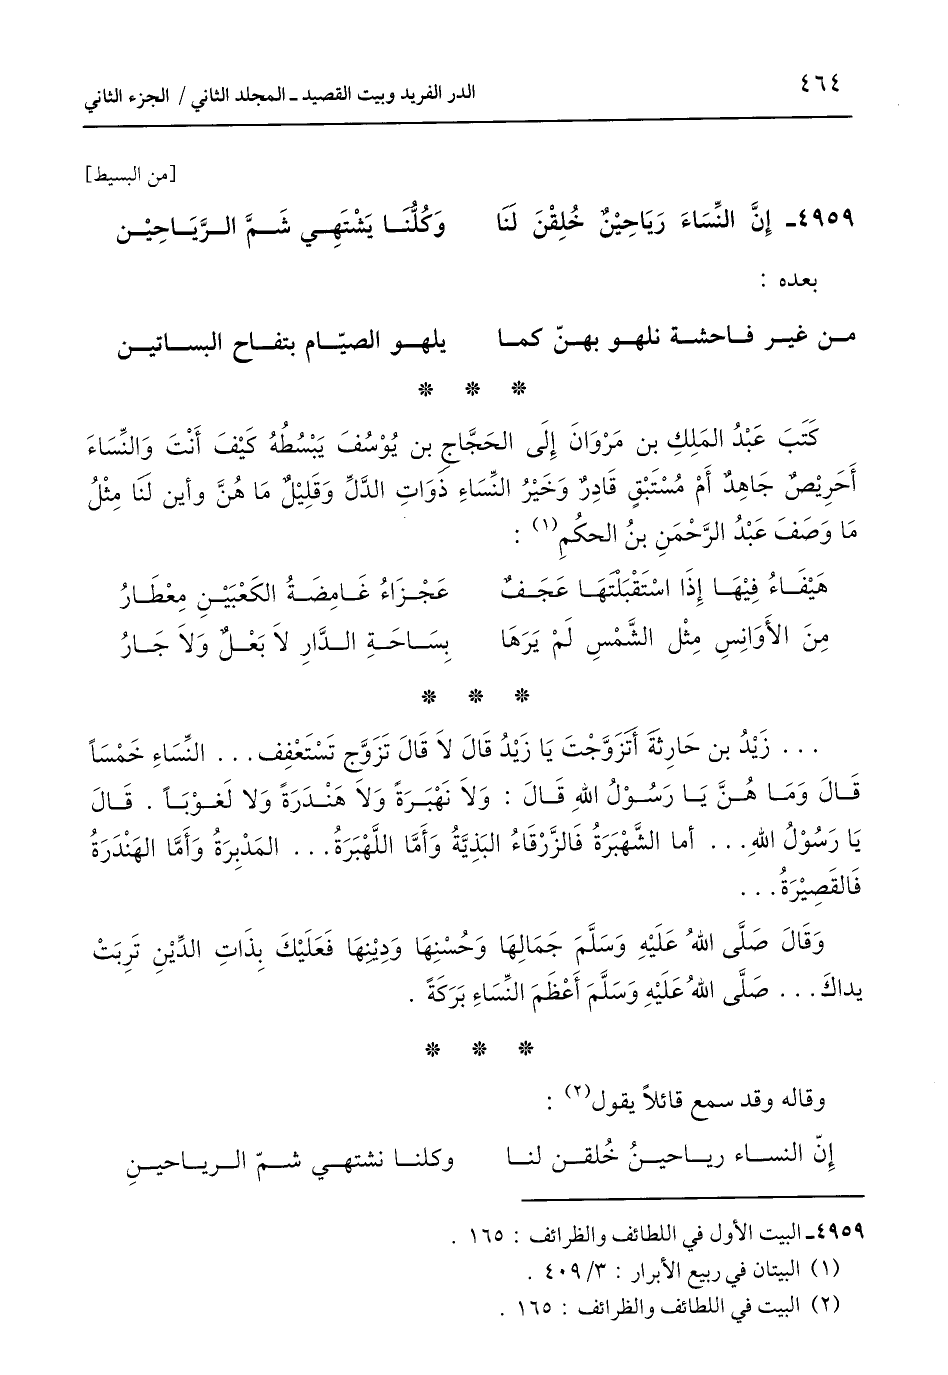 ٤٦٤ الدر الفريد وبيت القصيد ـ المجلد الثاني / الجزء الثاني
[من البسيط]
٤٩٥٩ـ إِنَّ النِّسَاءَ رَيَاحِيْنٌ خُلِقْنَ لَنَا وَكُلُّنَا يَشْتَهِي شَمَّ الرَّيَاحِيْنِ
بعده :
من غير فاحشة نلهو بهنّ كما يلهو الصيّام بتفاح البساتين
* * *
كَتَبَ عَبْدُ المَلِكِ بن مَرْوَانَ إِلَى الحَجَّاجِ بن يُوْسُفَ يَبْسُطُهُ كَيْفَ أَنْتَ وَالنِّسَاءَ
أَحَرِيْصٌ جَاهِدٌ أَمْ مُسْتَبْقٍ قَادِرٌ وَخَيْرُ النِّسَاءِ ذَوَاتِ الدَّلِّ وَقَلِيْلٌ مَا هُنَّ وأين لَنَا مِثْلُ
مَا وَصَفَ عَبْدُ الرَّحْمَنِ بنُ الحكَمِ(١) :
هَيْفَاءُ فِيْهَا إِذَا اسْتَقْبَلْتَهَا عَجَفٌ عَجْزَاءُ غَامِضَةُ الكَعْبَيْنِ مِعْطَارُ
مِنَ الأَوَانِسِ مِثْل الشَّمْسِ لَمْ يَرَهَا بِسَاحَةِ الدَّارِ لاَ بَعْلٌ وَلاَ جَارُ
* * *
... زَيْدُ بن حَارِثَةَ أَتَزَوَّجْتَ يَا زَيْدُ قَالَ لاَ قَالَ تَزَوَّج تَسْتَعْفِف ... النِّسَاءِ خَمْسَاً
قَالَ وَمَا هُنَّ يَا رَسُوْلُ اللهِ قَالَ : وَلَا نَهْبَرَةً وَلَا هَنْدَرَةً وَلا لَغوْبَاً . قَالَ
يَا رَسُوْلُ اللهِ ... أما الشَّهْبَرَةُ فَالزَّرْقَاءُ البَذِيَّةُ وَأَمَّا اللَّهْبَرَةُ ... المَدْبِرَةُ وَأَمَّا الهَنْدَرَةُ
فَالقَصِيْرَةُ ...
وَقَالَ صَلَّى اللهُ عَلَيْهِ وَسَلَّمَ جَمَالِهَا وَحُسْنِهَا وَدِيْنِهَا فَعَلَيْكَ بِذَاتِ الدِّيْنِ تَرِبَتْ
يداكَ ... صَلَّى اللهُ عَلَيْهِ وَسَلَّمَ أَعْظَمَ النِّسَاءِ بَرَكَةً .
* * *
وقاله وقد سمع قائلاً يقول(٢) :
إنّ النساء رياحينُ خُلقن لنا وكلنا نشتهي شمّ الرياحينِ
٤٩٥٩ـ البيت الأول في اللطائف والظرائف : ١٦٥ .
(١) البيتان في ربيع الأبرار : ٣/ ٤٠٩ .
(٢) البيت في اللطائف والظرائف : ١٦٥ .